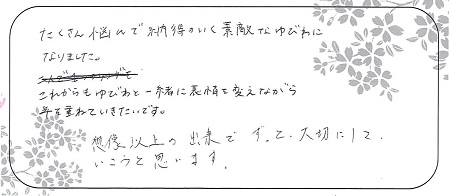 たくさん悩んで納得のいく素敵なゆびわに
なりました。
これからもゆびわと一緒に表情を変えながら
年を重ねていきたいです。
想像以上の出来です。ずっと、大切にして、
いこうと思います。